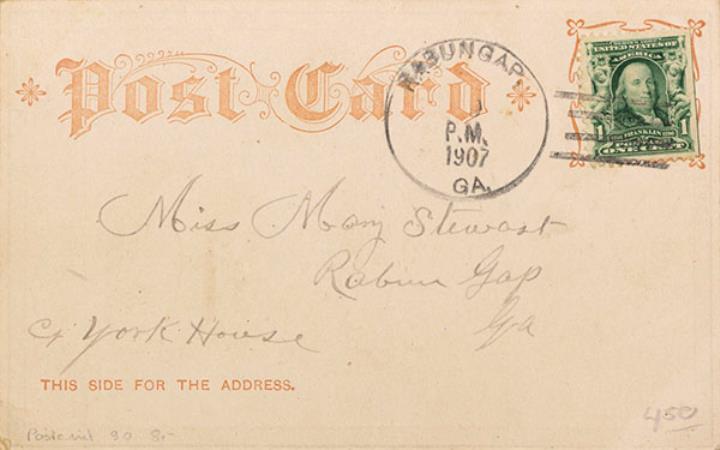 Post Card
RABUN GAP
P.M.
1907
GA.
UNITED STATES OF
AMERICA
1 FRANKLIN 1
POSTAGE
ONE CENT
Miss Mary Stewart
Rabun Gap
Ga
York House
THIS SIDE FOR THE ADDRESS.
Postcard 90 8.-
450